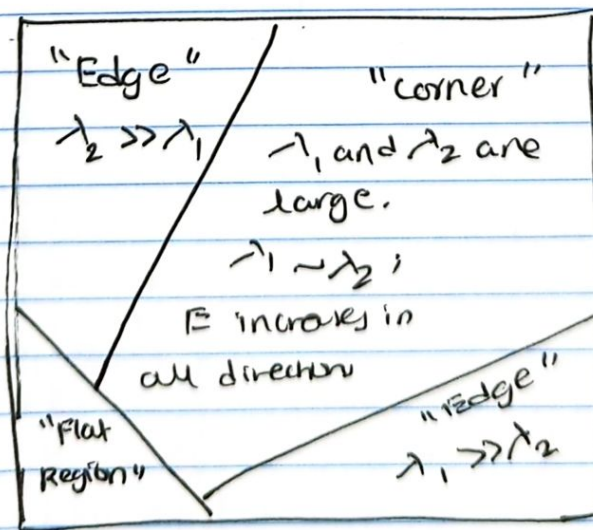 "Edge"
λ₂ >> λ₁
"corner"
λ₁ and λ₂ are
large.
λ₁ ~ λ₂ ;
E increases in
all direction
"Flat
Region"
"Edge"
λ₁ >> λ₂